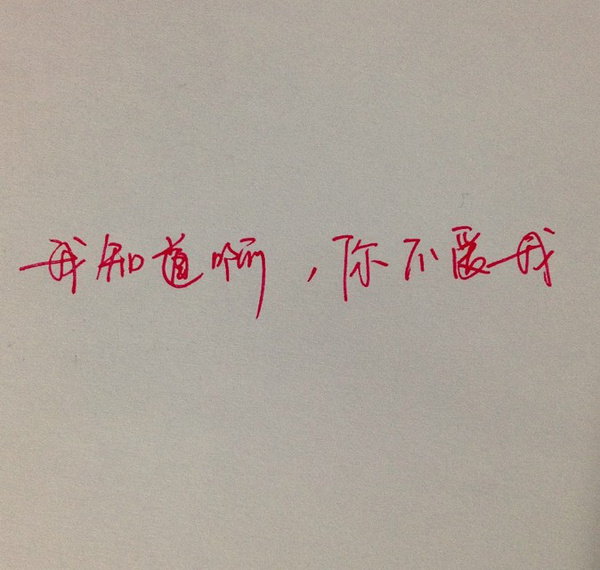 我知道啊，你不爱我